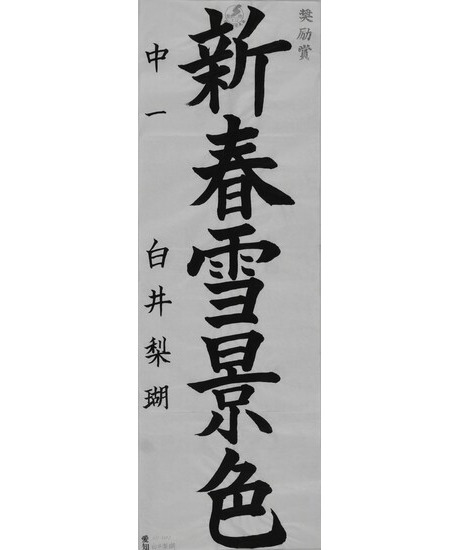 奨励賞
新春雪景色
中一 白井梨瑚
愛知